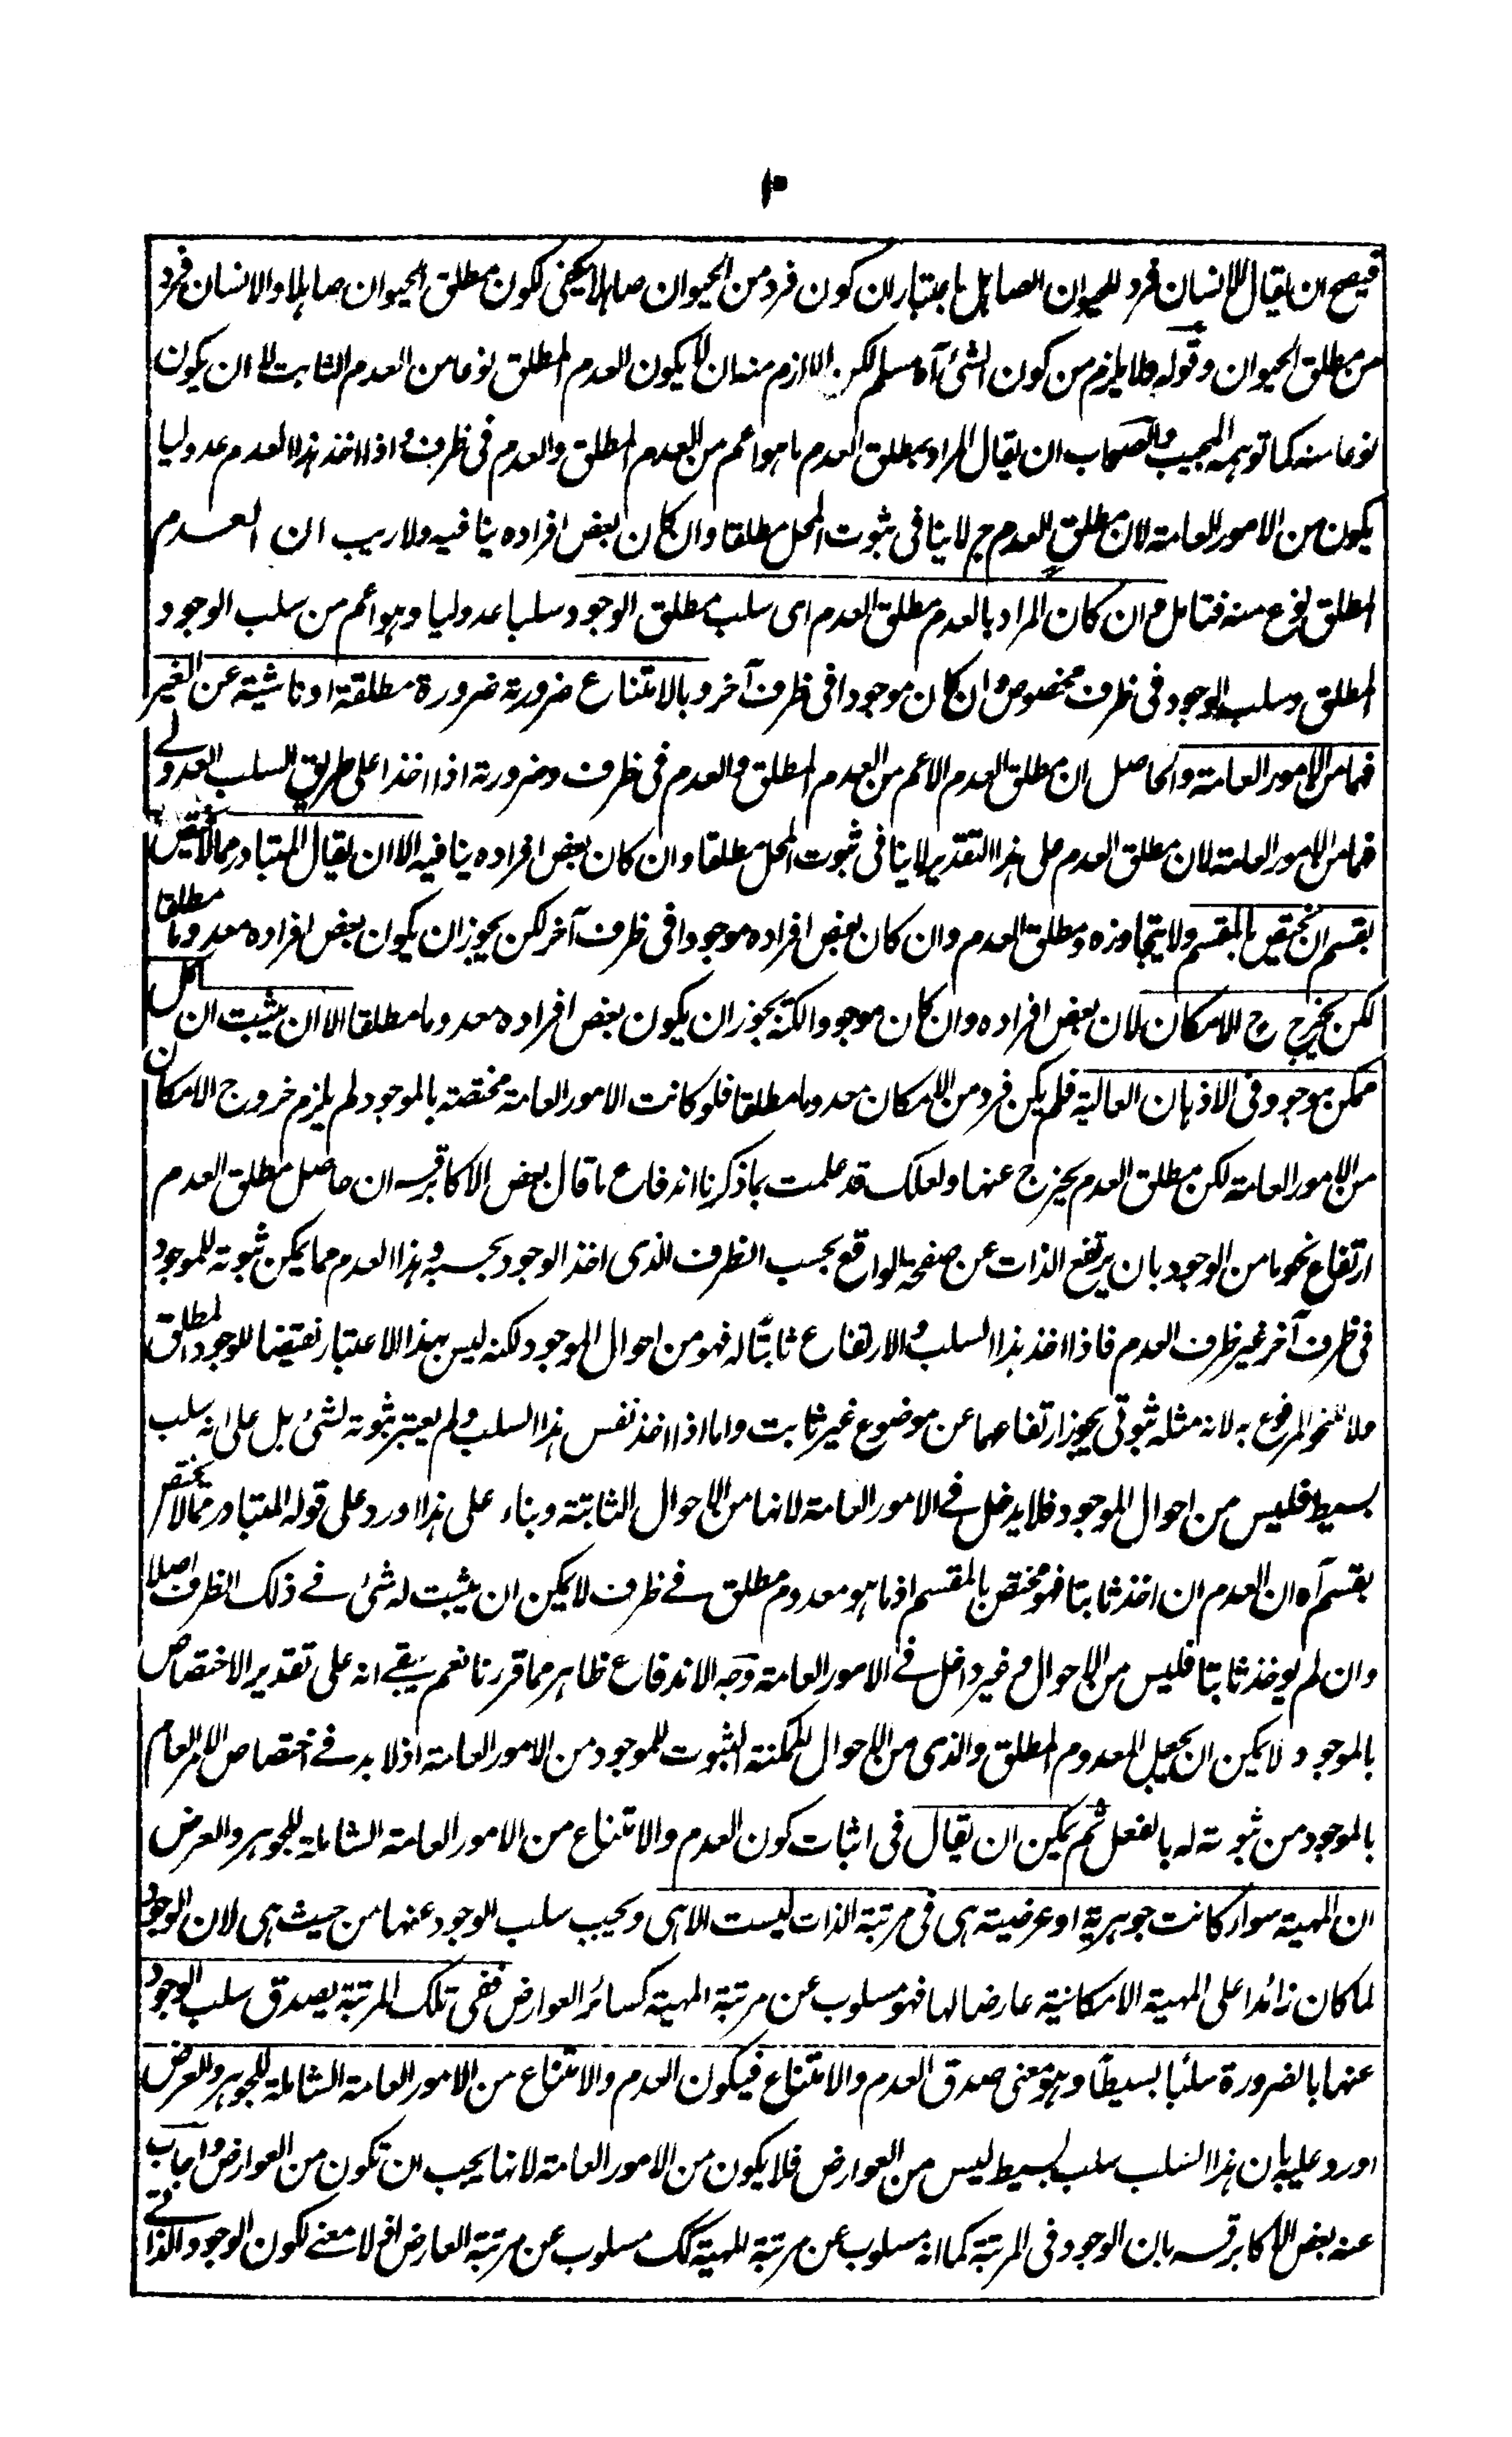 ١٠
فيصح ان يقال الانسان فرد للحيوان الصاهل باعتبار ان كون فرد من الحيوان صاهلا يكفى لكون مطلق الحيوان صاهلا والانسان فرد
من مطلق الحيوان وقوله فلا يلزم من كون الشئ آه مسلم لكن اللازم منه ان لا يكون العدم المطلق نوعا من العدم الثابت لا ان يكون
نوعا منه كما توهمه المجيب والصحاب ان يقال المراد بمطلق العدم ما هو اعم من العدم المطلق والعدم فى ظرف و اذا اخذ هذا العدم عدوليا
يكون من الامور العامة لان مطلق العدم ح لا ينافى ثبوت المحل مطلقا وان كان بعض افراده ينافيه ولا ريب ان العدم
المطلق نوع منه فتامل م ان كان المراد بالعدم مطلق العدم اى سلب مطلق الوجود سلبا عدوليا وهو اعم من سلب الوجود
المطلق وسلب الوجود فى ظرف مخصوص وان كان موجودا فى ظرف آخر وبالامتناع ضرورته ضرورة مطلقة او ناشية عن الغير
فهما من الامور العامة والحاصل ان مطلق العدم الاعم من العدم المطلق والعدم فى ظرف وضرورته اذا اخذا على طريق السلب العدولے
فهما من الامور العامة لان مطلق العدم على هذا التقدير لا ينافى ثبوت المحل مطلقا وان كان بعض افراده ينافيه الا ان يقال المتبادر مما لا يختص
بقسم ان يختص بالمقسم ولا يتجاوزه ومطلق العدم وان كان بعض افراده موجودا فى ظرف آخر لكن يجوز ان يكون بعض افراده معدوما مطلقا
لكن يخرج ح الامكان لان بعض افراده وان كان موجودا لكنه يجوز ان يكون بعض افراده معدوما مطلقا الا ان يثبت ان كل
ممكن موجود فى الاذهان العالية فلم يكن فرد من الامكان معدوما مطلقا فلو كانت الامور العامة مختصة بالموجود لم يلزم خروج الامكان
من الامور العامة لكن مطلق العدم يخرج عنها ولعلك قد علمت بما ذكرنا اندفاع ما قال بعض الاكابر قسه ان حاصل مطلق العدم
ارتفاع نحو ما من الوجود بان يرتفع الذات عن صفحة الواقع بحسب الظرف الذى اخذ الوجود بحسبه و هذا العدم مما يمكن ثبوته للموجود
فى ظرف آخر غير ظرف العدم فاذا اخذ هذا السلب والارتفاع ثابتا له فهو من احوال الموجود لكنه ليس بهذا الاعتبار نقيضا للوجود المطلق
ولا للنحو المرفوع به لانه مثله ثبوتى يجوز ارتفاعهما عن موضوع غير ثابت واما اذا اخذ نفس هذا السلب ولم يعتبر ثبوته لشئ بل على انه سلب
بسيط فليس من احوال الموجود فلا يدخل فے الامور العامة لانها من الاحوال الثابتة وبناء على هذا اورد على قوله المتبادر مما لا يختص
بقسم آه ان العدم ان اخذ ثابتا فهو مختص بالمقسم اذ ما هو معدوم مطلق فے ظرف لا يمكن ان يثبت له شئ فے ذلك الظرف اصلا
وان لم يوخذ ثابتا فليس من الاحوال و غير داخل فے الامور العامة وجه الاندفاع ظاهر مما قررنا نعم يبقے انه على تقدير الاختصاص
بالموجود لا يمكن ان يجعل المعدوم المطلق والذى من الاحوال الممكنة الثبوت للموجود من الامور العامة اذ لا بد فے اختصاص الامر العام
بالموجود من ثبوته له بالفعل ثم يمكن ان يقال فى اثبات كون العدم والامتناع من الامور العامة الشاملة للجوهر والعرض
ان المهية سواء كانت جوهرية او عرضية هى فى مرتبة الذات ليست الا هى ويجب سلب الوجود عنها من حيث هى لان الوجود
لما كان زائدا على المهية الامكانية عارضا لها فهو مسلوب عن مرتبة المهية كسائر العوارض ففى تلك المرتبة يصدق سلب الوجود
عنها بالضرورة سلبا بسيطا وهو معنى صدق العدم والامتناع فيكون العدم والامتناع من الامور العامة الشاملة للجوهر والعرض
اورد عليه بان هذا السلب سلب بسيط ليس من العوارض فلا يكون من الامور العامة لانها يجب ان تكون من العوارض واجاب
عنه بعض الاكابر قسه بان الوجود فى المرتبة كما انه مسلوب عن مرتبة المهية كك مسلوب عن مرتبة العارض اذ لا معنے لكون الوجود الذاتے